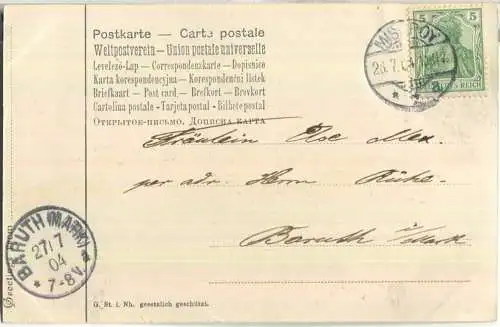 Postkarte – Carte postale
Weltpostverein – Union postale universelle
Levelező-Lap – Correspondenzkarte – Dopisnice
Karta korespondencyjna – Korespondenční lístek
Briefkaart – Post card – Brefkort – Brevkort
Cartolina postale – Tarjeta postal – Bilhete postal
Открытое-письмо, Дописна карта
5 5
REICH
MIS OY
26.7.04
Fräulein Else
per adr. Herrn
Baruth i/Mark
BARUTH (MARK)
27/7
04
* 7-8V. *
G. St. i. Nh. gesetzlich geschützt.